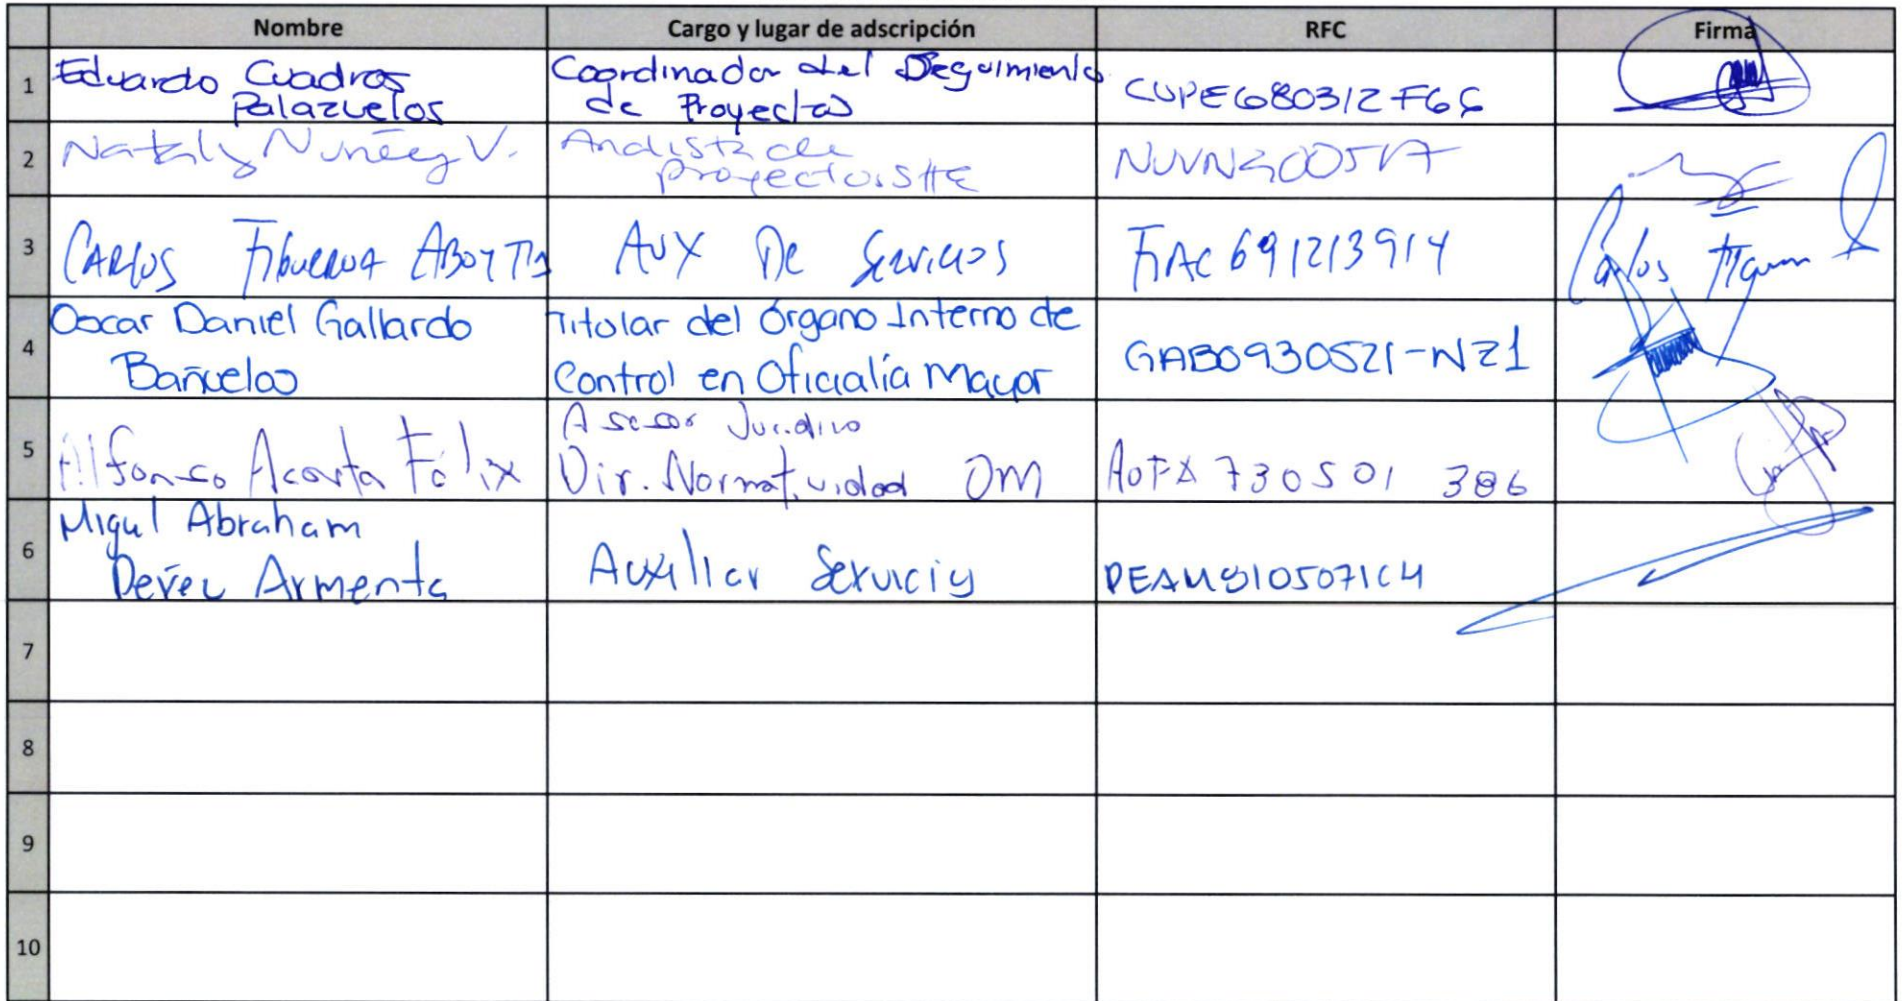 Nombre Cargo y lugar de adscripción RFC Firma
1 Eduardo Cuadros Palazuelos
Coordinador del Seguimiento
de Proyectos
CUPE680312F66
2 Nataly Nuñez V.
Analista de
proyectos. SHE
3 Carlos Figueroa Aboytia
Aux De Servicios
FIAC691213914
Carlos Figueroa
4 Oscar Daniel Gallardo
Bañuelos
Titular del Órgano Interno de
Control en Oficialía Mayor
GABO930521-NZ1
5 Alfonso Acosta Félix
Asesor Jurídico
Dir. Normatividad OM
AOFA 730501 386
6 Migul Abraham
Armenta
Auxiliar Servicios
7
8
9
10